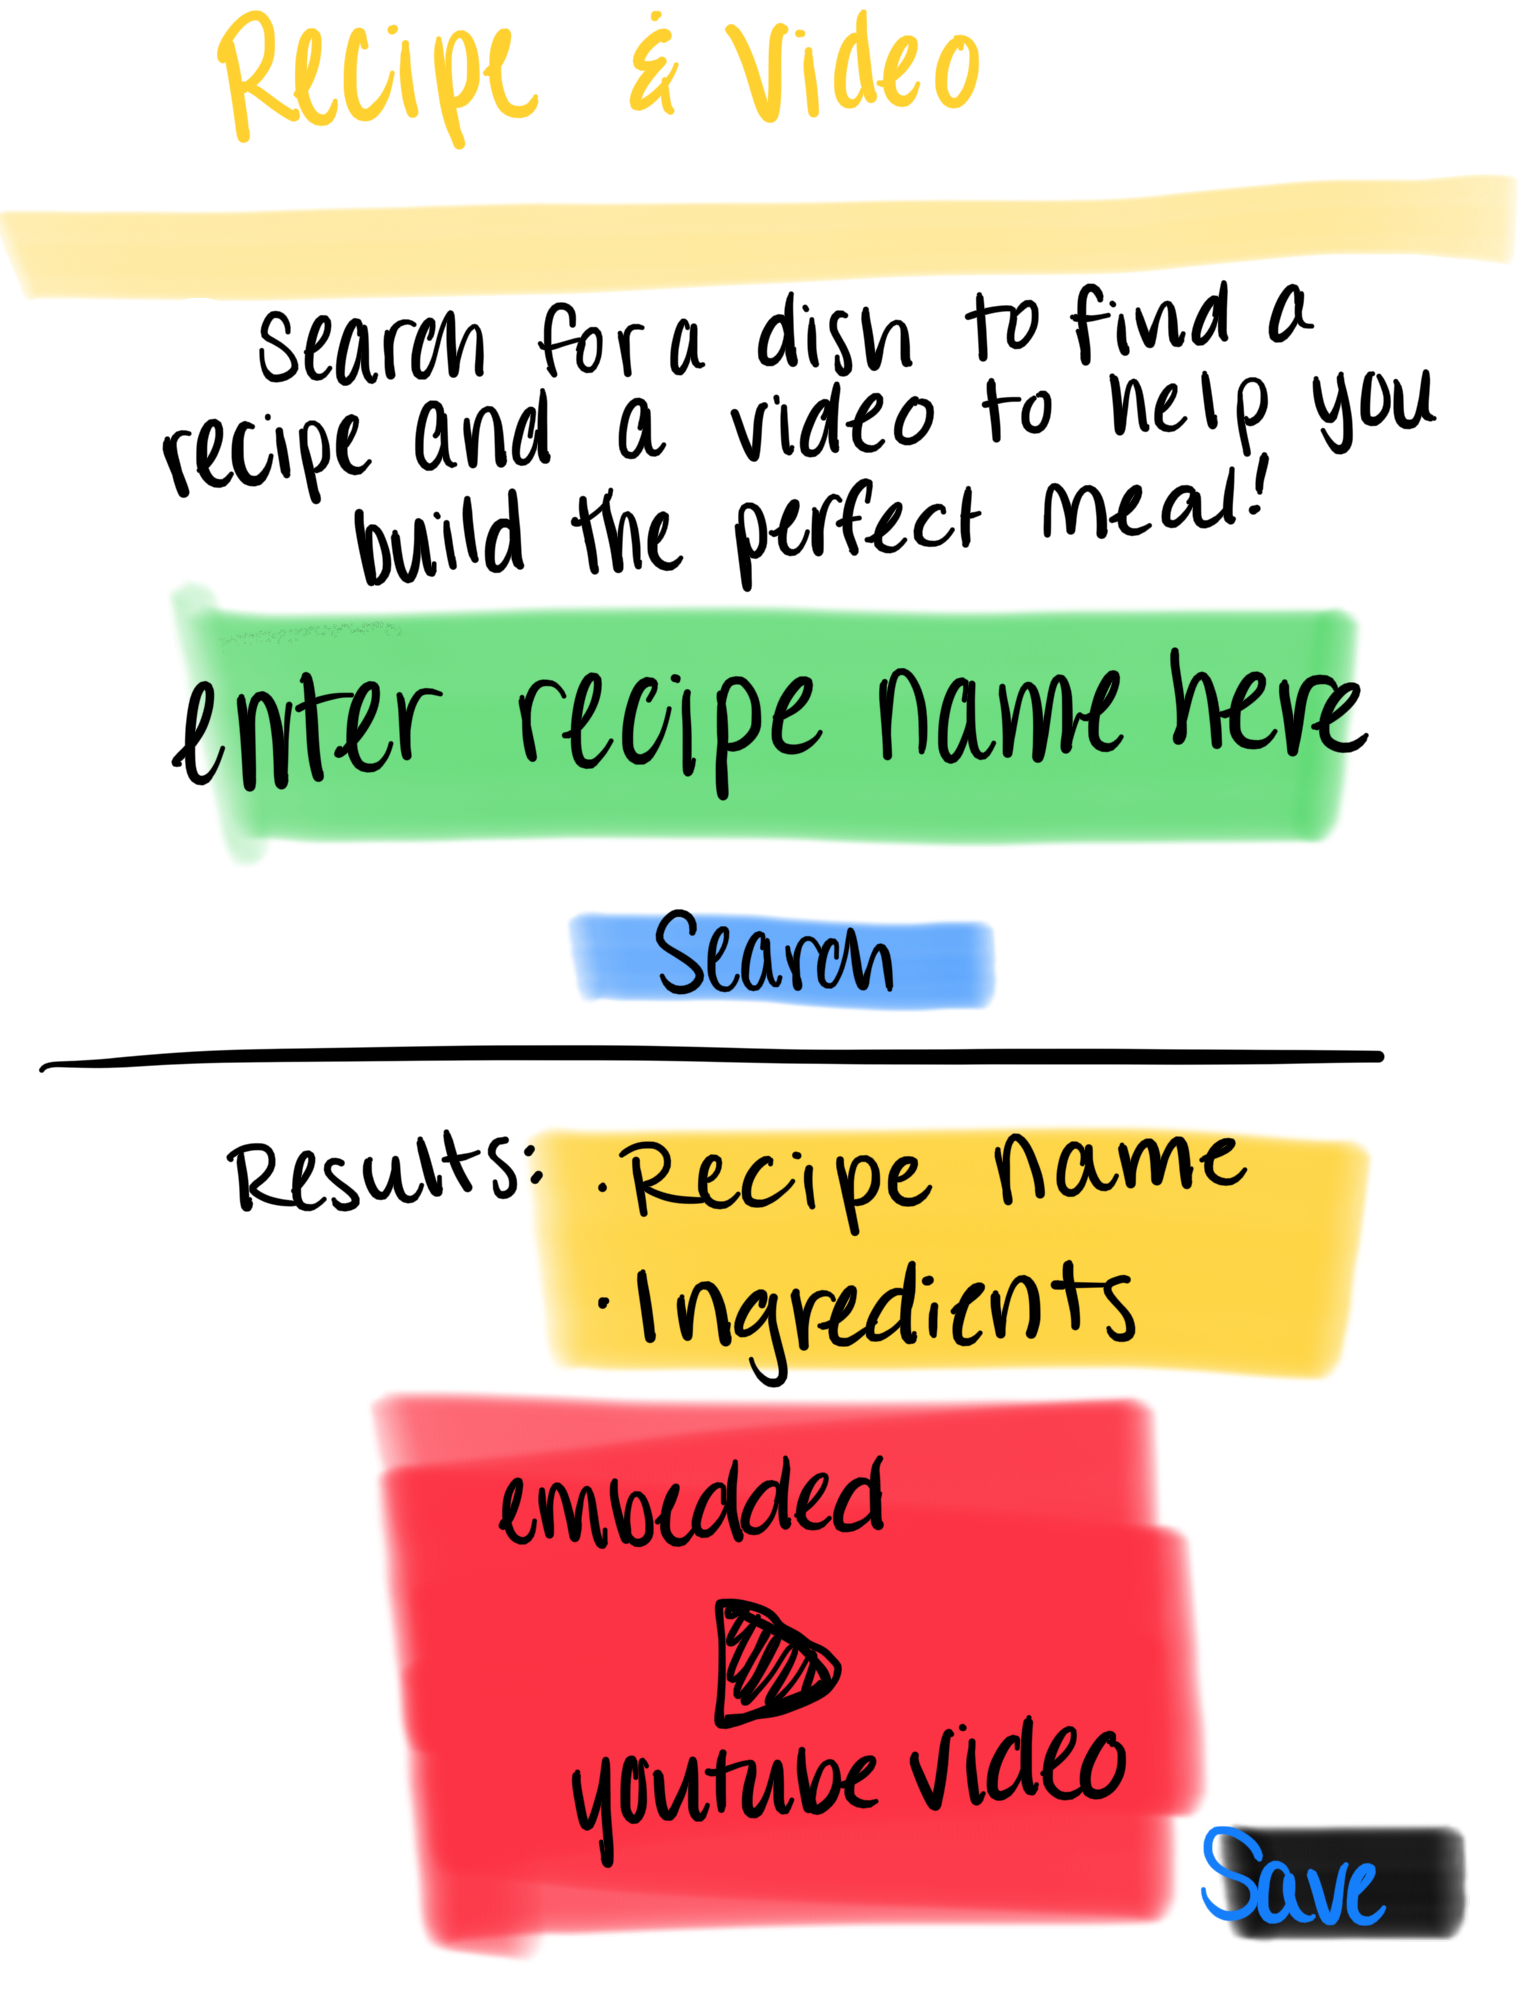 Recipe & Video
Search for a dish to find a
recipe and a video to help you
build the perfect meal!
enter recipe name here
Search
Results: · Recipe name
· Ingredients
embedded
youtube video
Save